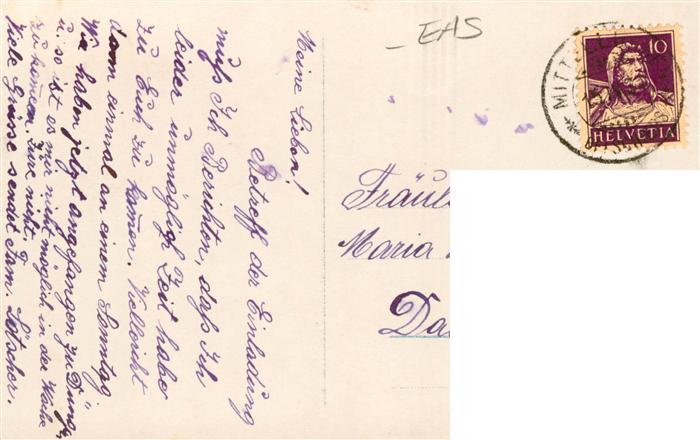 EAS
10
HELVETIA
MITTEL
Meine Lieben!
Betreff der Einladung
muß Ich Berichten, daß Ich
leider unmöglich Zeit habe
zu Euch zu komen. Vielleicht
dann einmal an einem Sonntag
Wir haben jetzt angefangen zu Dung„
u. so ist es mir nicht möglich in der Woche
zu komen. Zürt nicht.
Viele Grüsse sendet Fam. Lötscher.
Fräul
Maria
Da